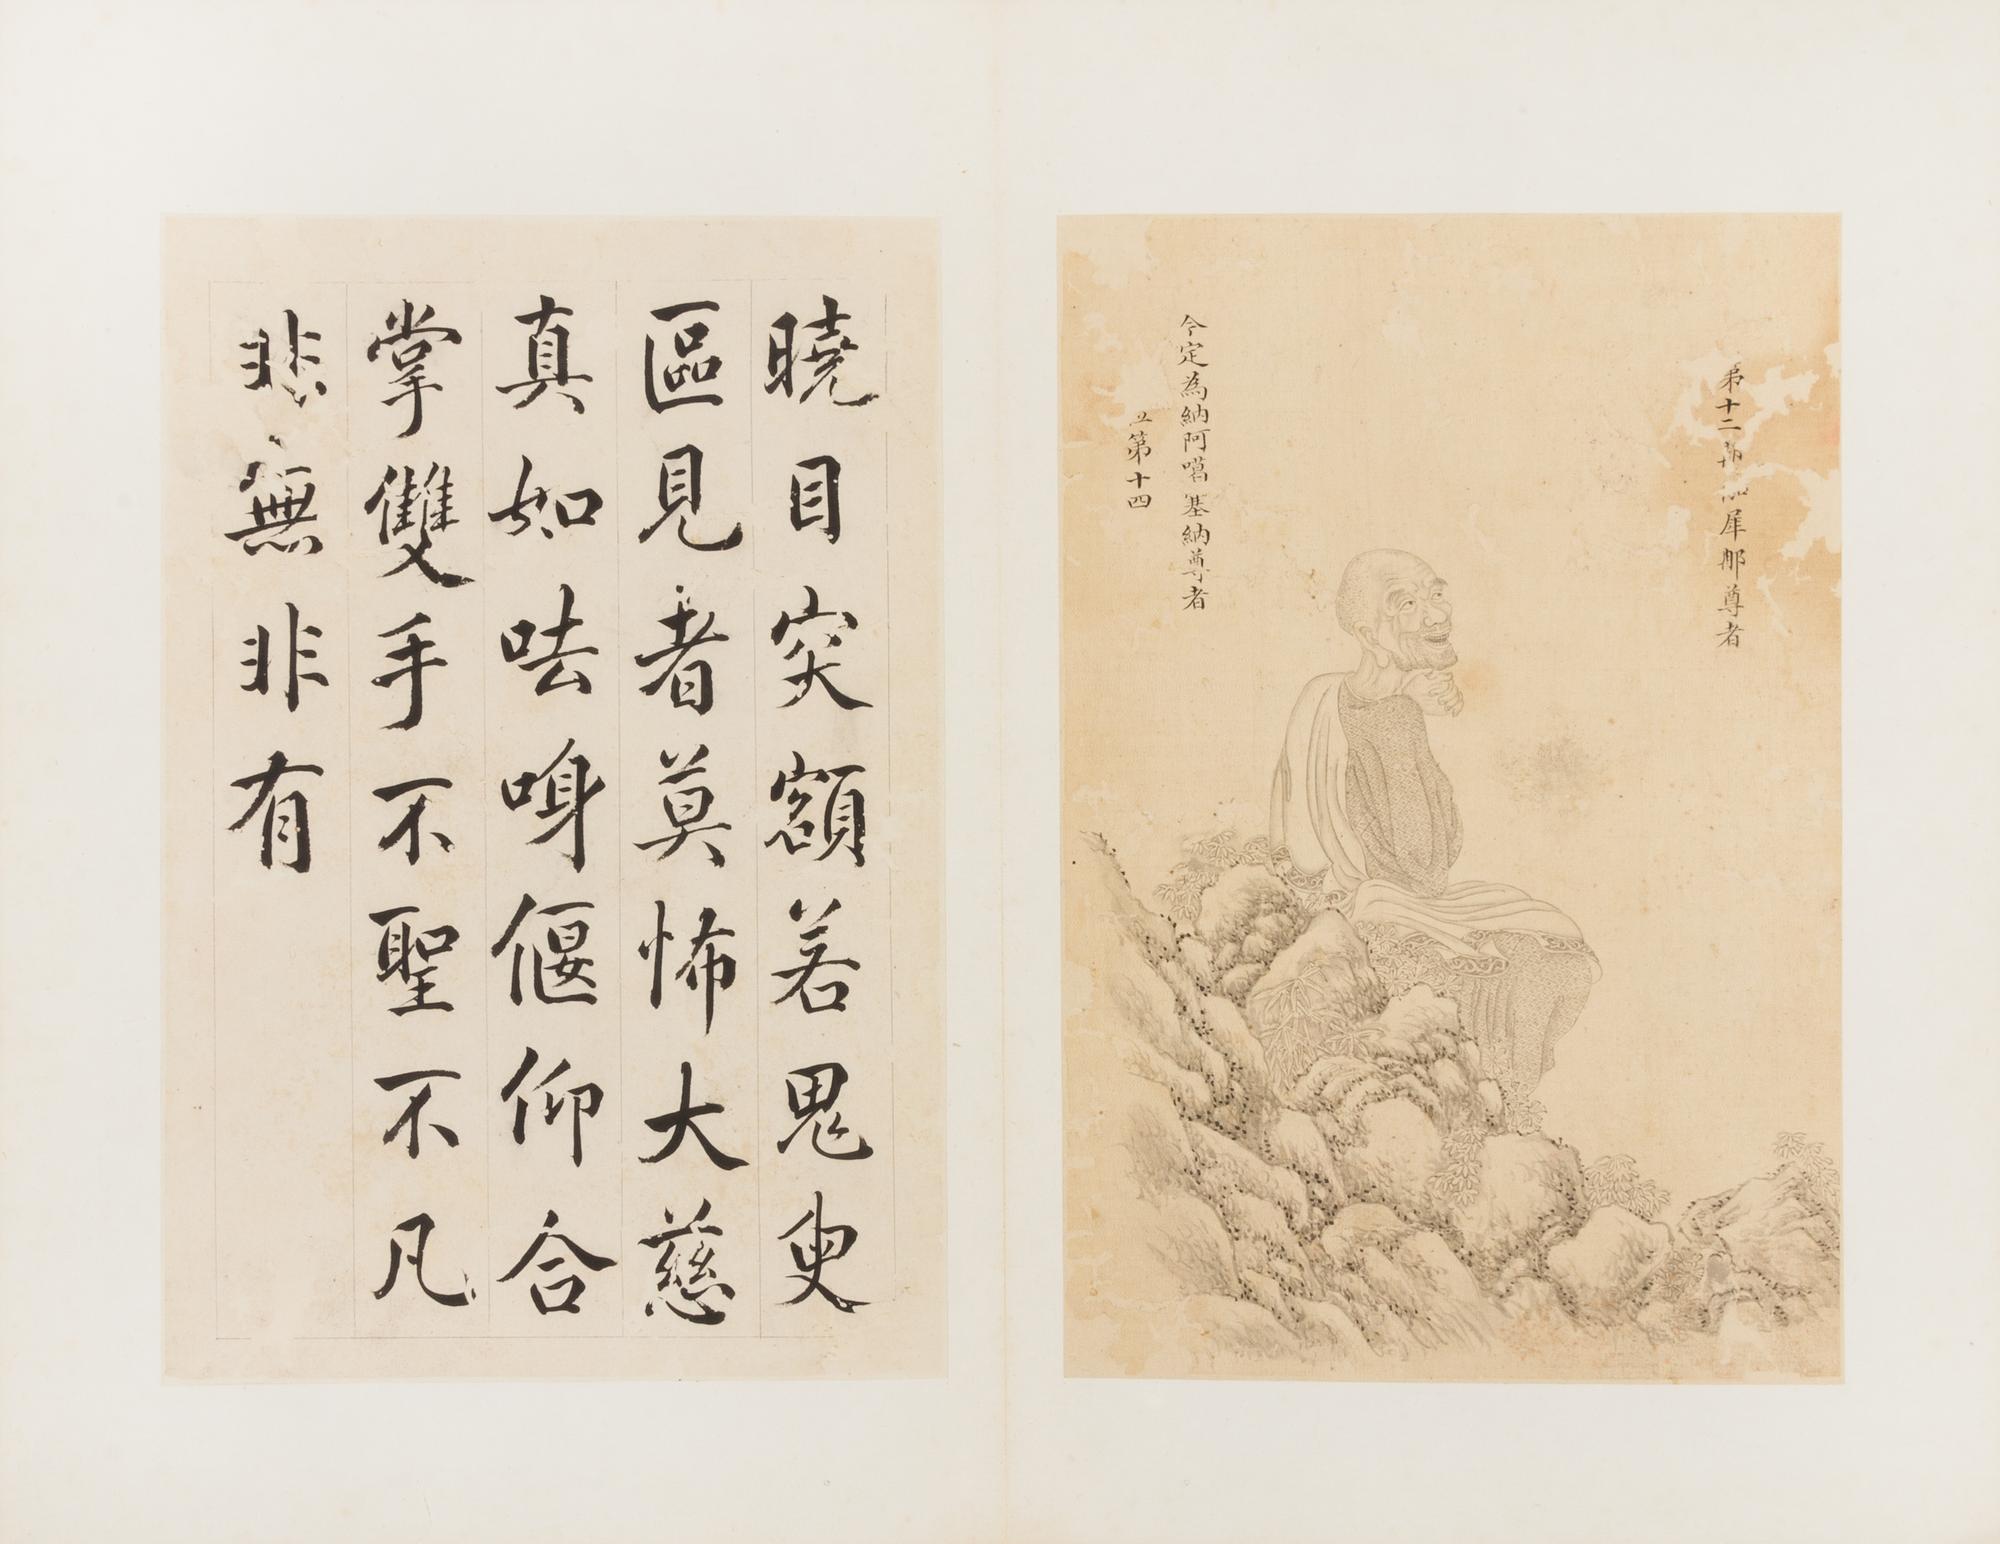 第十二那伽犀那尊者
今定為納阿噶塞納尊者
位第十四
曉目突額若鬼臾
區見者莫怖大慈
真如呿呻偃仰合
掌雙手不聖不凡
非無非有